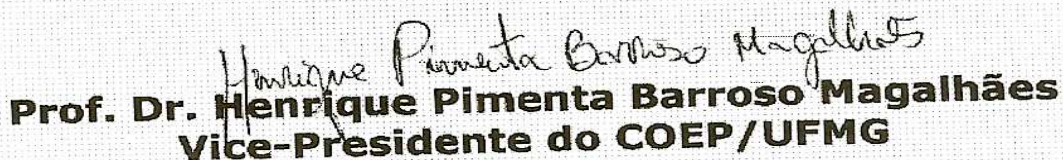 Henrique Pimenta Barroso Magalhães
Prof. Dr. Henrique Pimenta Barroso Magalhães
Vice-Presidente do COEP/UFMG